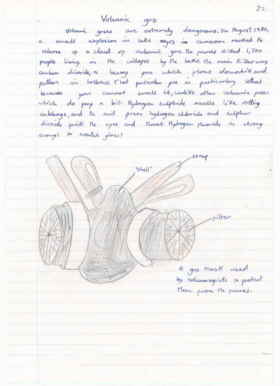 22.
Volcanic gas
Volcanic gases are extremely dangerous. In August 1986,
a small explosion in lake nyos in Cameroon resulted the
release of a cloud of volcanic gas. The fumes killed 1,700
people living in the villages by the lake. The main killer was
carbon dioxide, a heavy gas which flows downhill and
gathers in hollows. That particular gas is particulary lethal
because you cannot smell it, unlike other volcanic gases
which do pong a bit. Hydrogen sulphide smells like rotting
cabbage, and the acid gases hydrogen chloride and sulphur
dioxide prickle the eyes and throat. Hydrogen fluoride is strong
enough to etch glass!
strap
"shell"
filter
A gas mask used
by volcanologists to protect
them from the fumes.